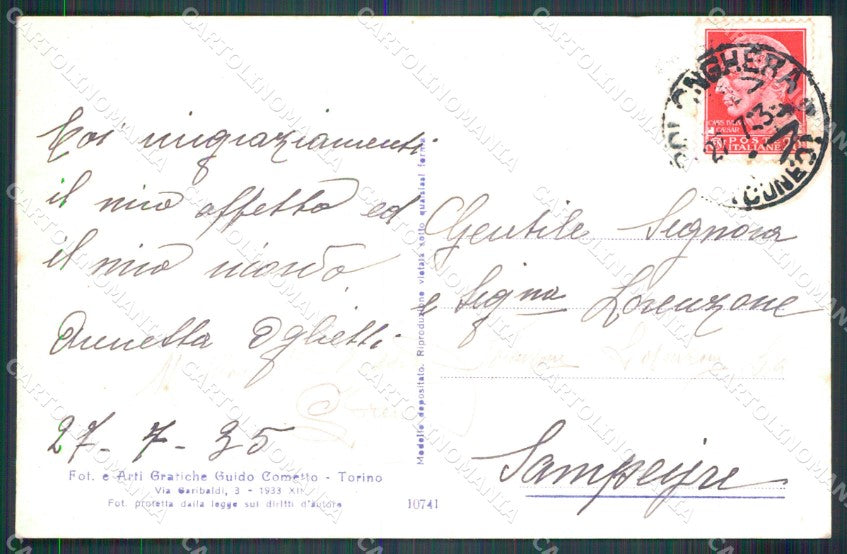 Coi ringraziamenti
il mio affetto ed
il mio ricordo
Annetta Oglietti
27-7-35
Fot. e Arti Grafiche Guido Cometto - Torino
Via Garibaldi, 3 - 1933 XII
Fot. protetta dalla legge sui diritti d'autore
10741
Modello depositato. Riproduzione vietata sotto qualsiasi forma
POLONGHERA
(CUNEO)
POSTE
ITALIANE
Gentile Signora
e Signa Lorenzone
Sampeyre
CARTOLINOMANIA